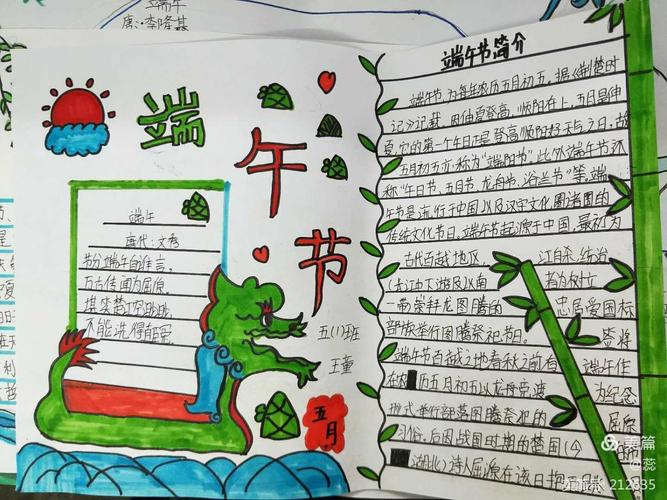 端午
唐:李隆基
端午节
端午
唐代:文秀
节分端午自谁言,
万古传闻为屈原
堪笑楚江空渺渺,
不能洗得直臣冤。
五(1)班
王童
五月
端午节简介
端午节,为每年农历五月初五。据《荆楚时
记》记载,因仲夏登高,顺阳在上,五月是仲
夏,它的第一个午日正是登高顺阳好天气之日,故
五月初五亦称为“端阳节”。此外端午节还
称“午日节、五月节、龙舟节、浴兰节”等,端
午节是流行于中国以及汉字文化圈诸国的
传统文化节日。端午节起源于中国,最初为
古代百越地区
江自杀,统治
(长江中下游及以南
者为树立
一带)崇拜龙图腾的
忠居爱国标
部族举行图腾祭祀节日。
签将
端午节百越之地春秋之前有
端午作
在农历五月初五以龙舟竞渡
为纪念
形式举行部落图腾祭祀的
屈原
习俗,后因战国时期的楚国(今
湖北)诗人屈原在该日抱石
美篇
@蕊
212635